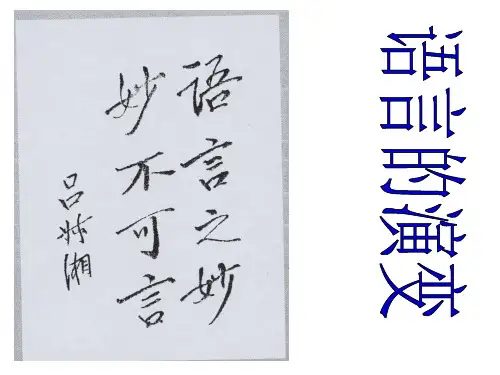 语言的演变
语言之妙
妙不可言
吕叔湘